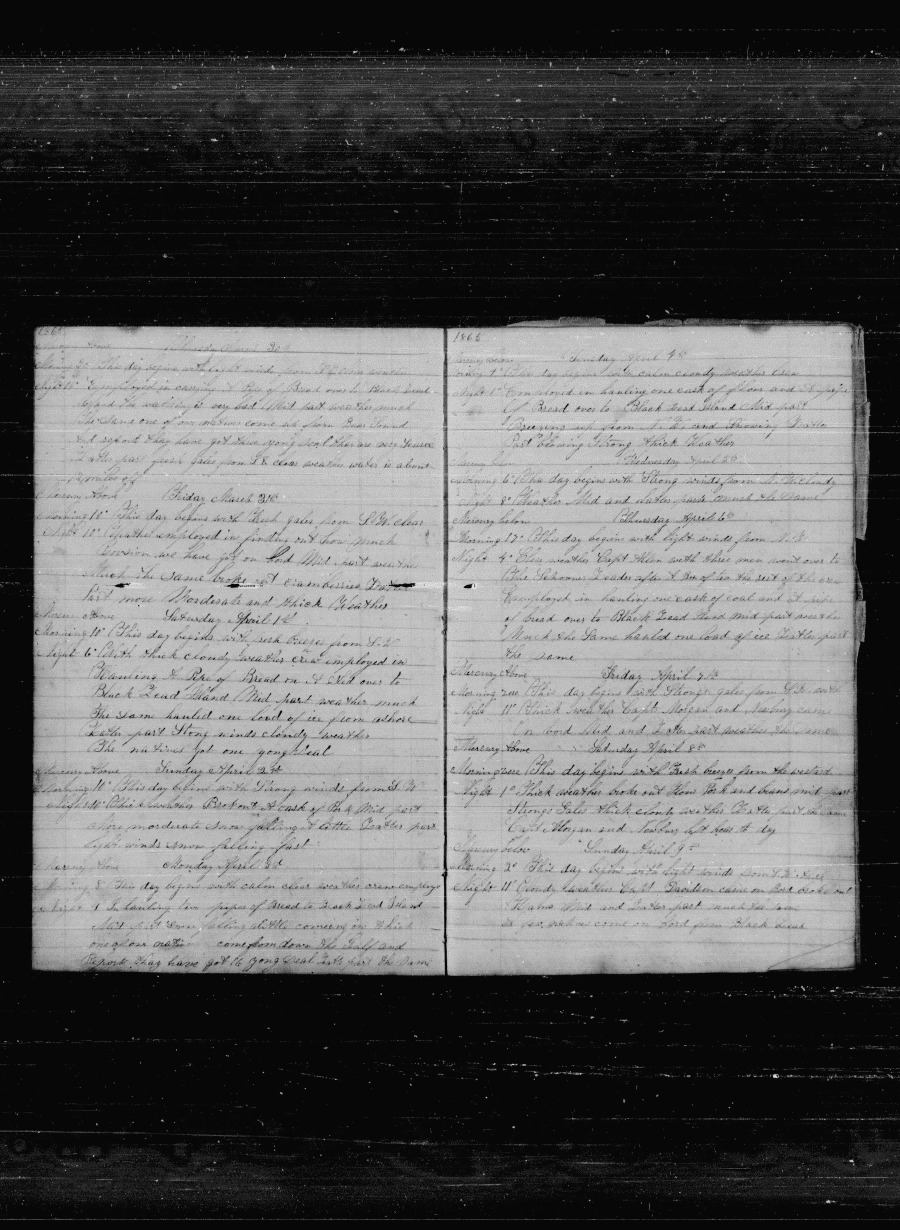 1865
Thursday March 30
Morning This day begins with light winds from clear weather
Night 11° Employed in carrying Pipe of Bread over to Black Lead
Island the walking is very bad Mid part weather much
the Same one of our natives come up from Sound
and report they have got two yong Seal they are very scarce
Latter part fresh gales from S.E clear weather water is about
miles of
Mercury Above Friday March 31
Morning 10° This day begins with Fresh gales from S.W. clear
Night 10° Weather employed in finding out how much
Provision we have got on Bord Mid part weather
Much the Same broke out cramberries Latter
Part more Morderate and thick Weather
Above Saturday April 1st
Morning 10° This day begins with fresh breezes from
Night 6° With thick cloudy weather crew employed in
Hauling Pipe of Bread on A sled over to
Black Lead Island Mid part weather much
the same hauled one load of ice from ashore
Latter part Stong winds cloudy weather
The natives got one yong Seal
Mercury Above Sunday April 2d
Morning 11° This day begins with Strong winds from S.W
Night Thick weather Brok out A cask of Pork Mid part
More morderate snow falling A little Latter part
light winds snow falling fast
Mercury Above Monday April 3d
Morning 8 This day begins with calm clear weather crew employ
Night 1 In hauling two pipes of Bread to Black Lead Island
Mid part snow falling alittle coming in thick
one of our native come from down the Gulf and
report they have got 16 yong Seal Latter part the Same
1865
Tuesday April 4th
1° This day begins with calm cloudy weather crew
Night 1° Employed in hauling one cask of flour and A pipe
Of Bread over to Black Lead Island Mid part
Breezing up from N. E. and Snowing Latter
Part blowing Strong thick Weather
Wednesday April 5th
Morning 6° This day begins with Strong winds from N. W cloudy
Night 8° Weather Mid and Latter part much the Same
Mercury below Thursday April 6th
Morning 17° This day begins with light winds from N.
Night 4° Clear weather Capt Allen with three men went over to
the Schooner Leader after A Bm of tea the rest of the crew
Employed in hauling one cask of coal and A pipe
of bread over to Black Lead Iland Mid part weather
Much the Same hauled one load of ice Latter part
the same
Mercury Above Friday April 7th
Morning zero This day begins with Strong gales from S.E. with
Night 11° thick weather Capt. Morgan and Newbury came
on bord Mid and Latter part weather the same
Mercury Above Saturday April 8th
Morning zero This day begins with Fresh breezes from the westard
Night 1° Thick weather broke out Flour Pork and beans mid part
Strong Gale thick cloudy weather Latter part the same
Capt Morgan and Newbury left here to day
Mercury below Sunday April 9th
Morning 2° This day begins with light winds from S.W.
Night 11° Cloudy weather Capt. Davidson came on Bord broke out
Hams Mid and Latter part much the same
come on Bord from Black Lead